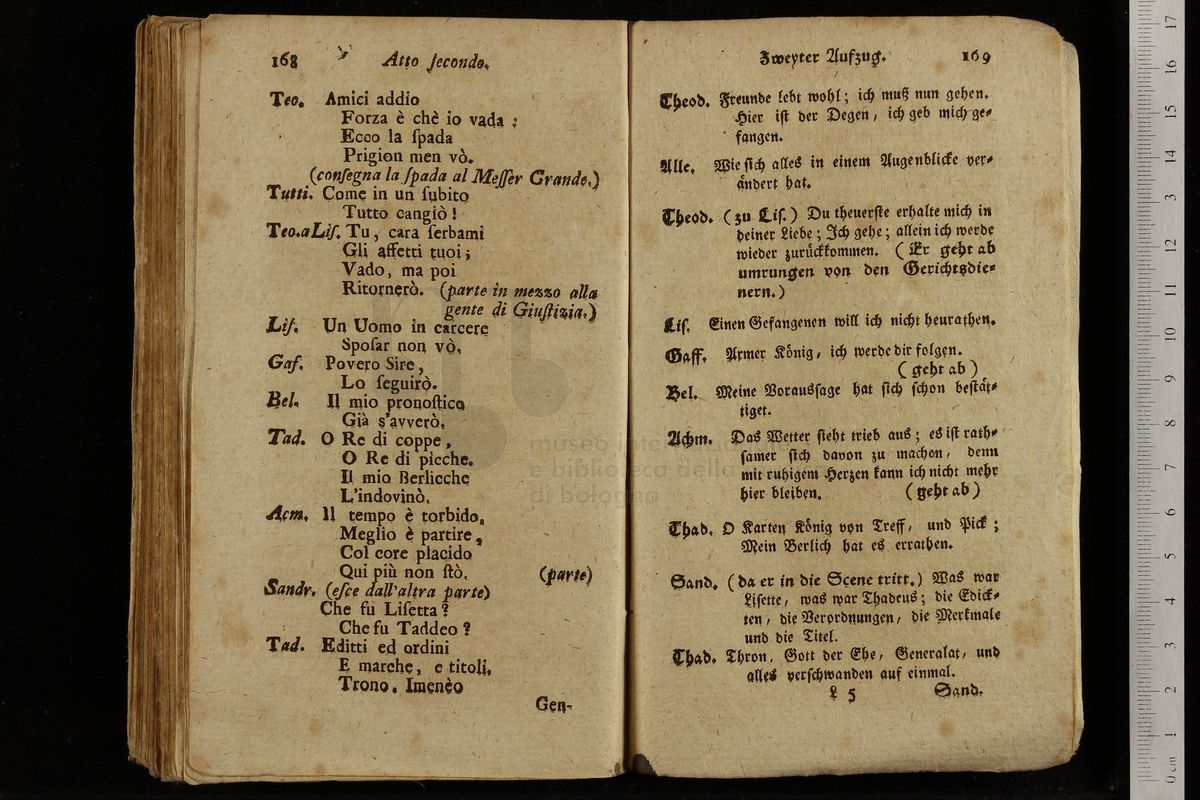 168 Atto ſecondo.
Teo. Amici addio
Forza è chè io vada :
Ecco la ſpada
Prigion men vò.
(conſegna la ſpada al Meſſer Grande.)
Tutti. Come in un ſubito
Tutto cangiò !
Teo. a Liſ. Tu, cara ſerbami
Gli affetti tuoi ;
Vado, ma poi
Ritornerò. (parte in mezzo alla
gente di Giuſtizia.)
Liſ. Un Uomo in carcere
Spoſar non vò.
Gaf. Povero Sire,
Lo ſeguirò.
Bel. Il mio pronoſtico
Già s'avverò.
Tad. O Re di coppe,
O Re di picche.
Il mio Berlicche
L'indovinò.
Acm. Il tempo è torbido,
Meglio è partire,
Col core placido
Qui più non ſtò. (parte)
Sandr. (eſce dall'altra parte)
Che fu Liſetta ?
Che fu Taddeo ?
Tad. Editti ed ordini
E marche, e titoli,
Trono. Imenèo
Gen-
Zweyter Aufzug. 169
Theod. Freunde lebt wohl; ich muß nun gehen.
Hier iſt der Degen, ich geb mich ge⸗
fangen.
Alle. Wie ſich alles in einem Augenblicke ver⸗
ändert hat.
Theod. (zu Liſ.) Du theuerſte erhalte mich in
deiner Liebe; Ich gehe; allein ich werde
wieder zurückkommen. (Er geht ab
umrungen von den Gerichtsdie⸗
nern.)
Liſ. Einen Gefangenen will ich nicht heurathen.
Gaff. Armer König, ich werde dir folgen.
(geht ab)
Bel. Meine Vorausſage hat ſich ſchon beſtät⸗
tiget.
Achm. Das Wetter ſieht trieb aus; es iſt rath⸗
ſamer ſich davon zu machen, denn
mit ruhigem Herzen kann ich nicht mehr
hier bleiben. (geht ab)
Thad. O Karten König von Treff, und Pick;
Mein Berlich hat es errathen.
Sand. (da er in die Scene tritt.) Was war
Liſette, was war Thadeus; die Edick⸗
ten, die Verordnungen, die Merkmale
und die Titel.
Thad. Thron, Gott der Ehe, Generalat, und
alles verſchwanden auf einmal.
L 5 Sand.